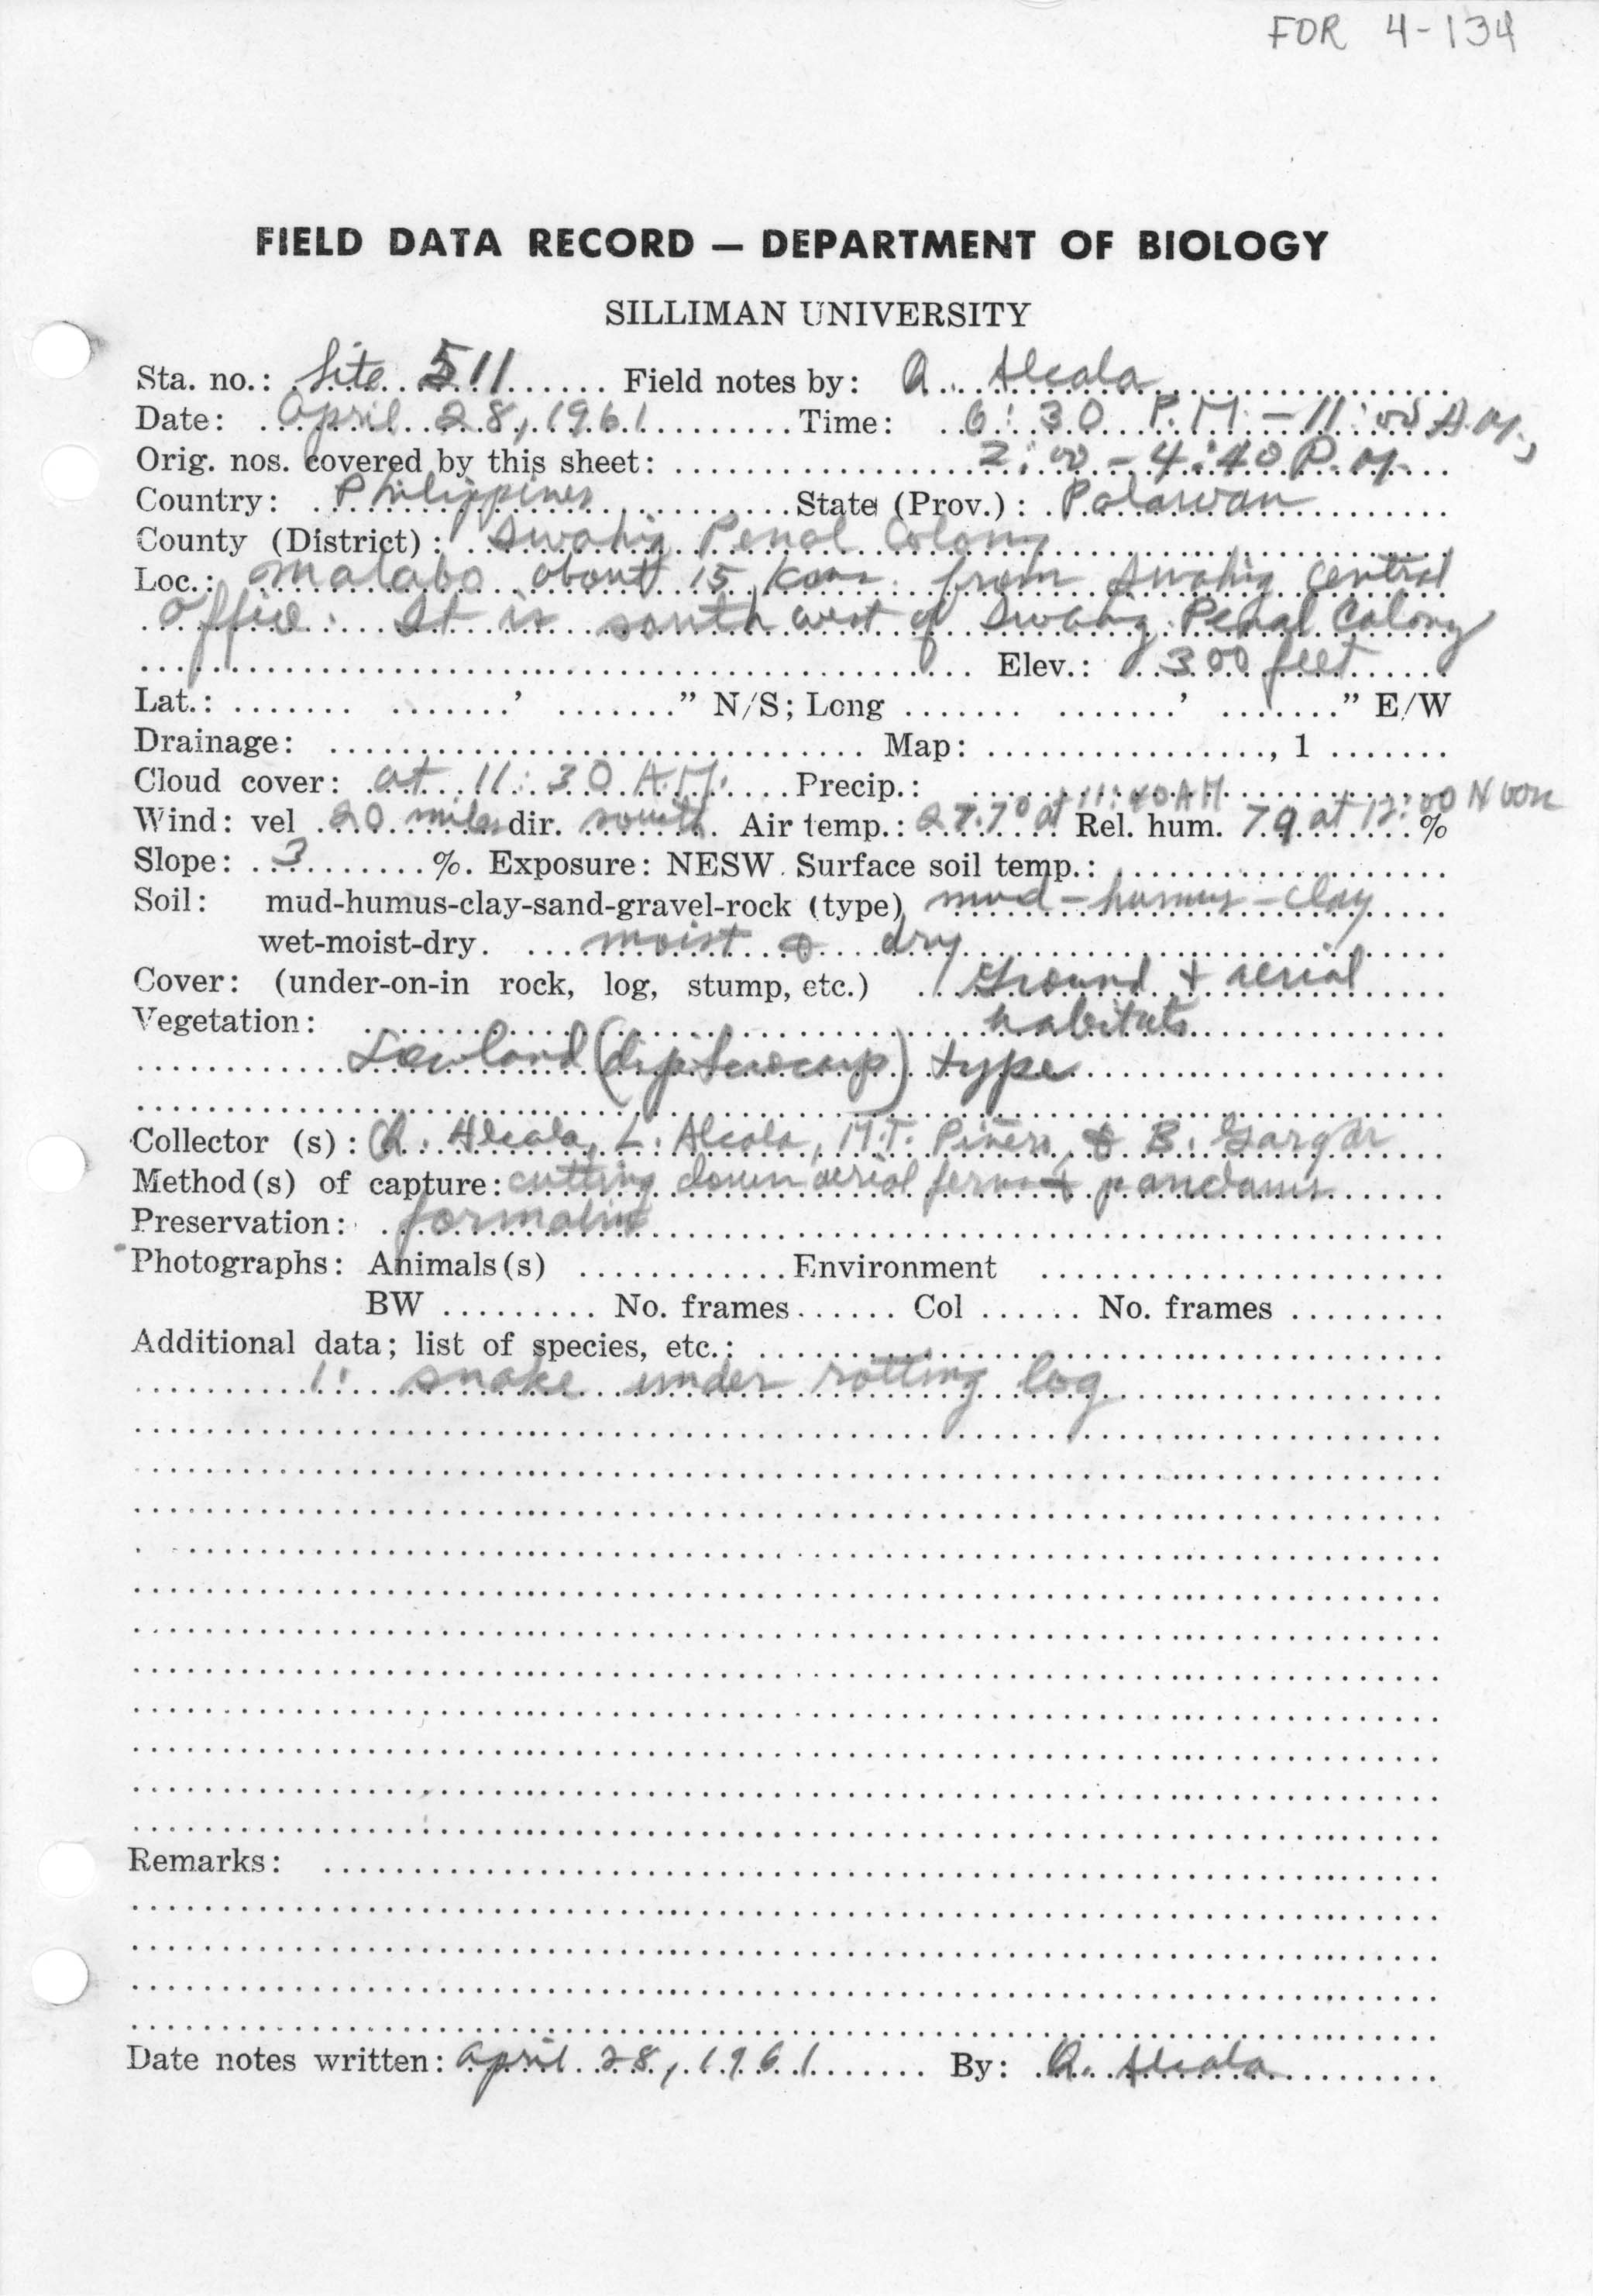 FOR 4-134
FIELD DATA RECORD — DEPARTMENT OF BIOLOGY
SILLIMAN UNIVERSITY
Sta. no.: Site 511 Field notes by: A. Alcala
Date: April 28, 1961 Time: 6:30 P.M. - 11:00 A.M.,
Orig. nos. covered by this sheet: 2:00 - 4:40 P.M.
Country: Philippines State (Prov.): Palawan
County (District): Iwahig Penal Colony
Loc.: Malabo about 15 kms. from Iwahig Central
Office. It is south west of Iwahig Penal Colony
Elev.: 300 feet
Lat.: ' " N/S; Long ' " E/W
Drainage: Map: , 1
Cloud cover: at 11:30 A.M. Precip.:
Wind: vel 20 miles dir. south. Air temp.: 27.7° at 11:40 AM Rel. hum. 79 at 12:00 Noon %
Slope: 3 %. Exposure: NESW. Surface soil temp.:
Soil: mud-humus-clay-sand-gravel-rock (type) mud-humus-clay
wet-moist-dry. moist & dry
Cover: (under-on-in rock, log, stump, etc.) Ground + aerial
Vegetation: habitats
Lowland (dipterocarp) type
Collector (s): A. Alcala, L. Alcala, M.T. Piñero, & B. Gargar
Method(s) of capture: cutting down aerial ferns + pandanus
Preservation: formalin
Photographs: Animals(s) Environment
BW No. frames Col No. frames
Additional data; list of species, etc.:
1. snake under rotting log
Remarks:
Date notes written: April 28, 1961 By: A. Alcala